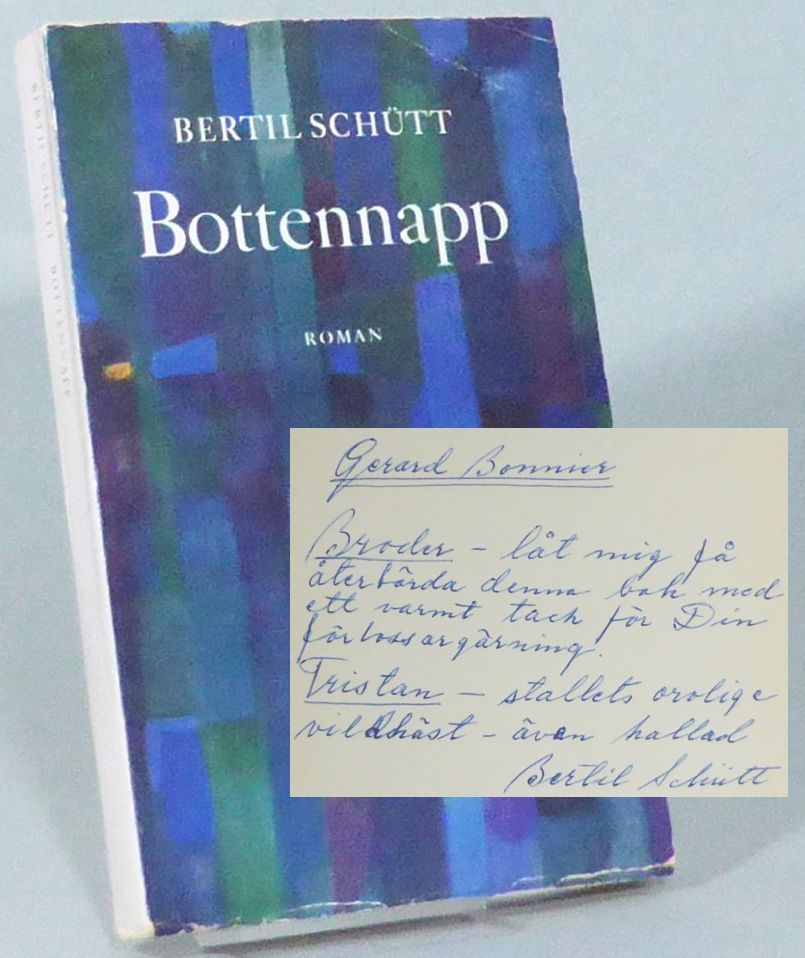 BERTIL SCHÜTT
Bottennapp
ROMAN
BERTIL SCHÜTT BOTTENNAPP
Gerard Bonnier
Broder – låt mig få
återbörda denna bok med
ett varmt tack för Din
förlossargärning.
Tristan – stallets orolige
vildhäst – även kallad
Bertil Schütt